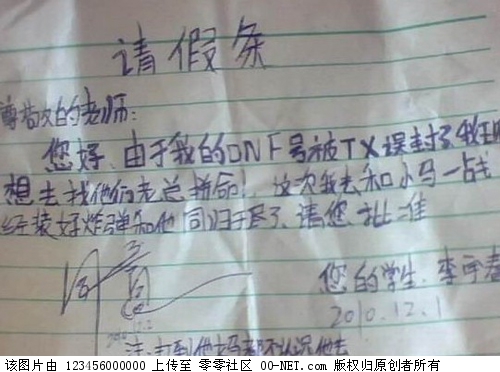 请假条
尊敬的老师:
您好,由于我的DNF号被TX误封了我
想去找他们老总拼命!这次我去和小马一战
经装好炸弹和他同归于尽了,请您批准
您的学生.李宇春
2010.12.1
该图片由 123456000000 上传至 零零社区 00-NET.com 版权归原创者所有